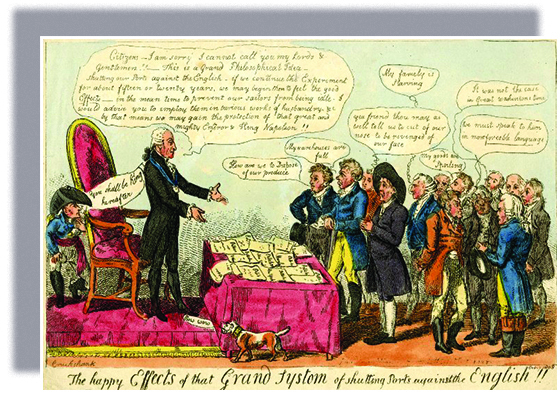 Citizens - I am sorry I cannot call you my Lords &
Gentlemen!! - This is a Grand Philosophical Idea -
shutting our Ports against the English - if we continue the Experiment
for about fifteen or twenty years, we may begin to feel the good
Effects - in the mean time to prevent our sailors from being idle - I
would advise you to employ them in various works of husbandry &c
by that means we may gain the protection of that great and
mighty Emperor & King Napolean !!
You shall be King
hereafter
How are we to Dispose
of our produce
My warehouses are
full
My famely is
Starving
you friend thou mays as
well tell us to cut of our
nose to be revenged of
our face
My goods are
Spoiling
It was not the case
in Great Washintons time
we must speak to him
in more forceble language
Bow wow
Cruikshank
The happy Effects of that Grand System of shutting Ports against the English !!